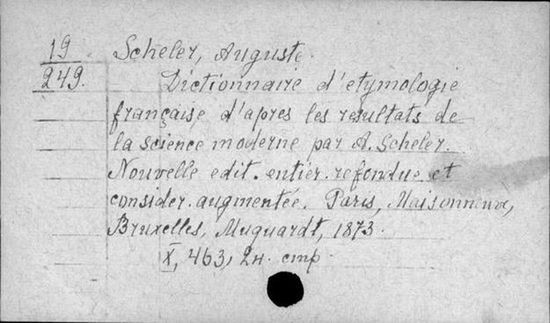 19
249.
Scheler, Auguste.
Dictionnaire d'etymologie
française d'apres les resultats de
la science moderne par A. Scheler.
Nouvelle edit. entièr. refondue et
consider. augmentée. Paris, Maisonneuve,
Bruxelles, Muquardt, 1873.
X, 463, 2н. стр.